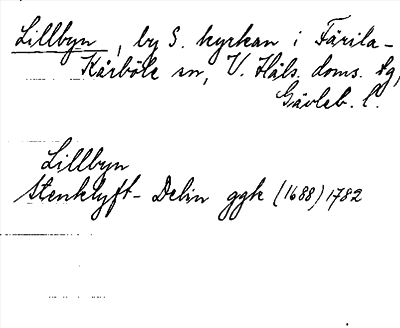 Lillbyn, by S. kyrkan i Färila-
Kårböle sn, V. Häls. doms. tg,
Gävleb. l.
Lillbyn
Stenklyft-Delin ggk (1688) 1782